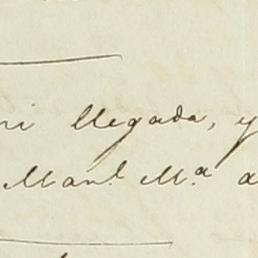 mi llegada, y
Manl. Ma. a